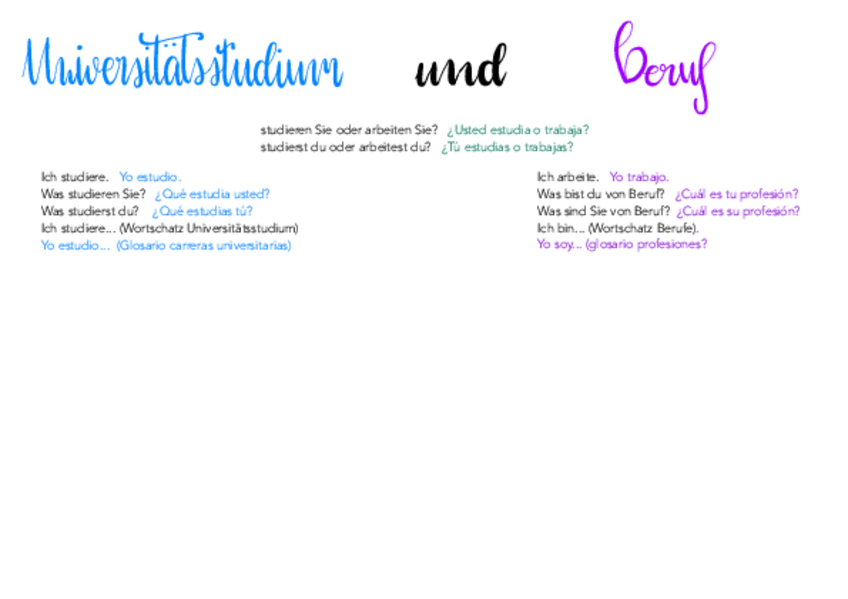 Universitätsstudium und Beruf
studieren Sie oder arbeiten Sie? ¿Usted estudia o trabaja?
studierst du oder arbeitest du? ¿Tú estudias o trabajas?
Ich studiere. Yo estudio.
Was studieren Sie? ¿Qué estudia usted?
Was studierst du? ¿Qué estudias tú?
Ich studiere... (Wortschatz Universitätsstudium)
Yo estudio... (Glosario carreras universitarias)
Ich arbeite. Yo trabajo.
Was bist du von Beruf? ¿Cuál es tu profesión?
Was sind Sie von Beruf? ¿Cuál es su profesión?
Ich bin... (Wortschatz Berufe).
Yo soy... (glosario profesiones?